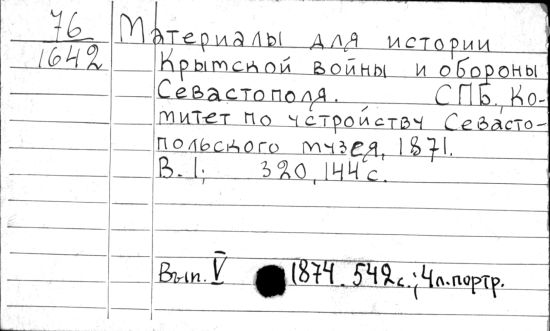 76
1642
Материалы для истории
Крымской войны и обороны
Севастополя. СПБ., Ко-
митет по устройству Севасто-
польского музея, 1871.
В. 1; 320, 144 с.
Вып. V 1874. 542 с.; 4 л. портр.